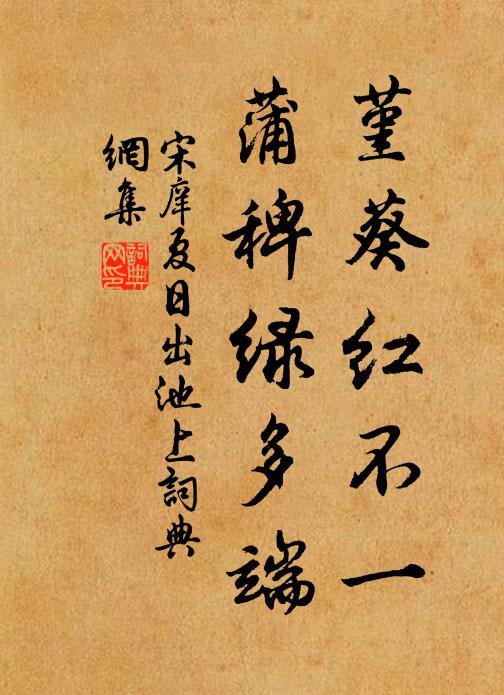 堇葵红不一
蒲稗绿多端
宋庠夏日出池上詞典
網集
詞典網印